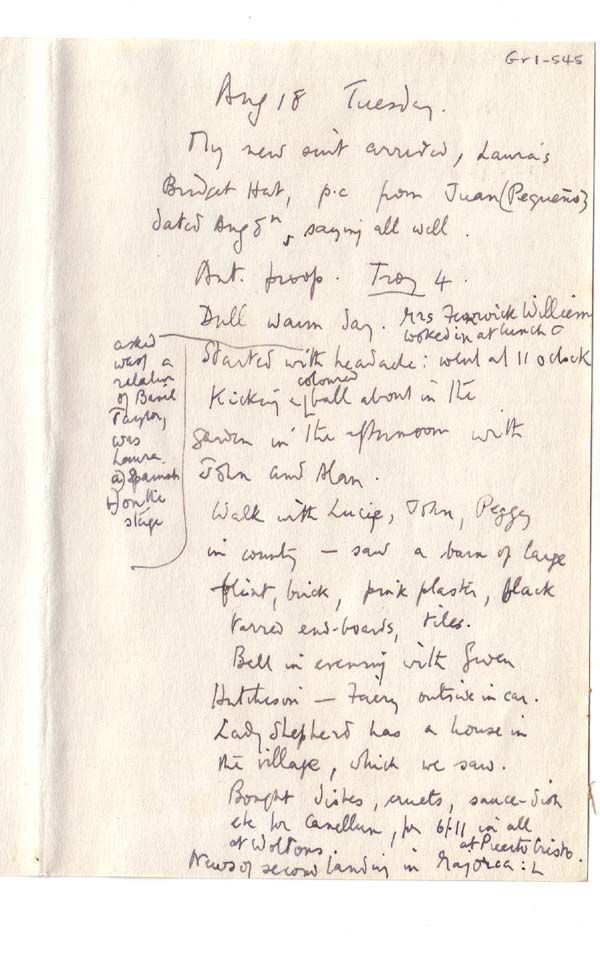 Gr1-545
Aug 18 Tuesday.
My new suit arrived, Laura's
Bridget Hat, p.c from Juan (Pequeño)
dated Aug 8th, saying all well.
Ant. proof. Troy 4.
Dull warm day. Mrs Fenwick William
looked in at lunch
asked
was I a
relation
of Basil
Taylor,
was
Laura
a) Spanish
b) on the
stage
Started with headache: went at 11 o clock
Kicking a coloured ball about in the
garden in the afternoon with
John and Alan.
Walk with Lucie, John, Peggy
in county – saw a barn of large
flint, brick, pink plaster, black
tarred end-boards, tiles.
Bell in evening with Gwen
Hutcheson – Faery outside in car.
Lady Shepherd has a house in
the village, which we saw.
Bought dishes, cruets, sauce-dish
etc for Canellun, for 6/-11 in all
at Woltons.
News of second landing in Majorca: L at Puerto Cristo.